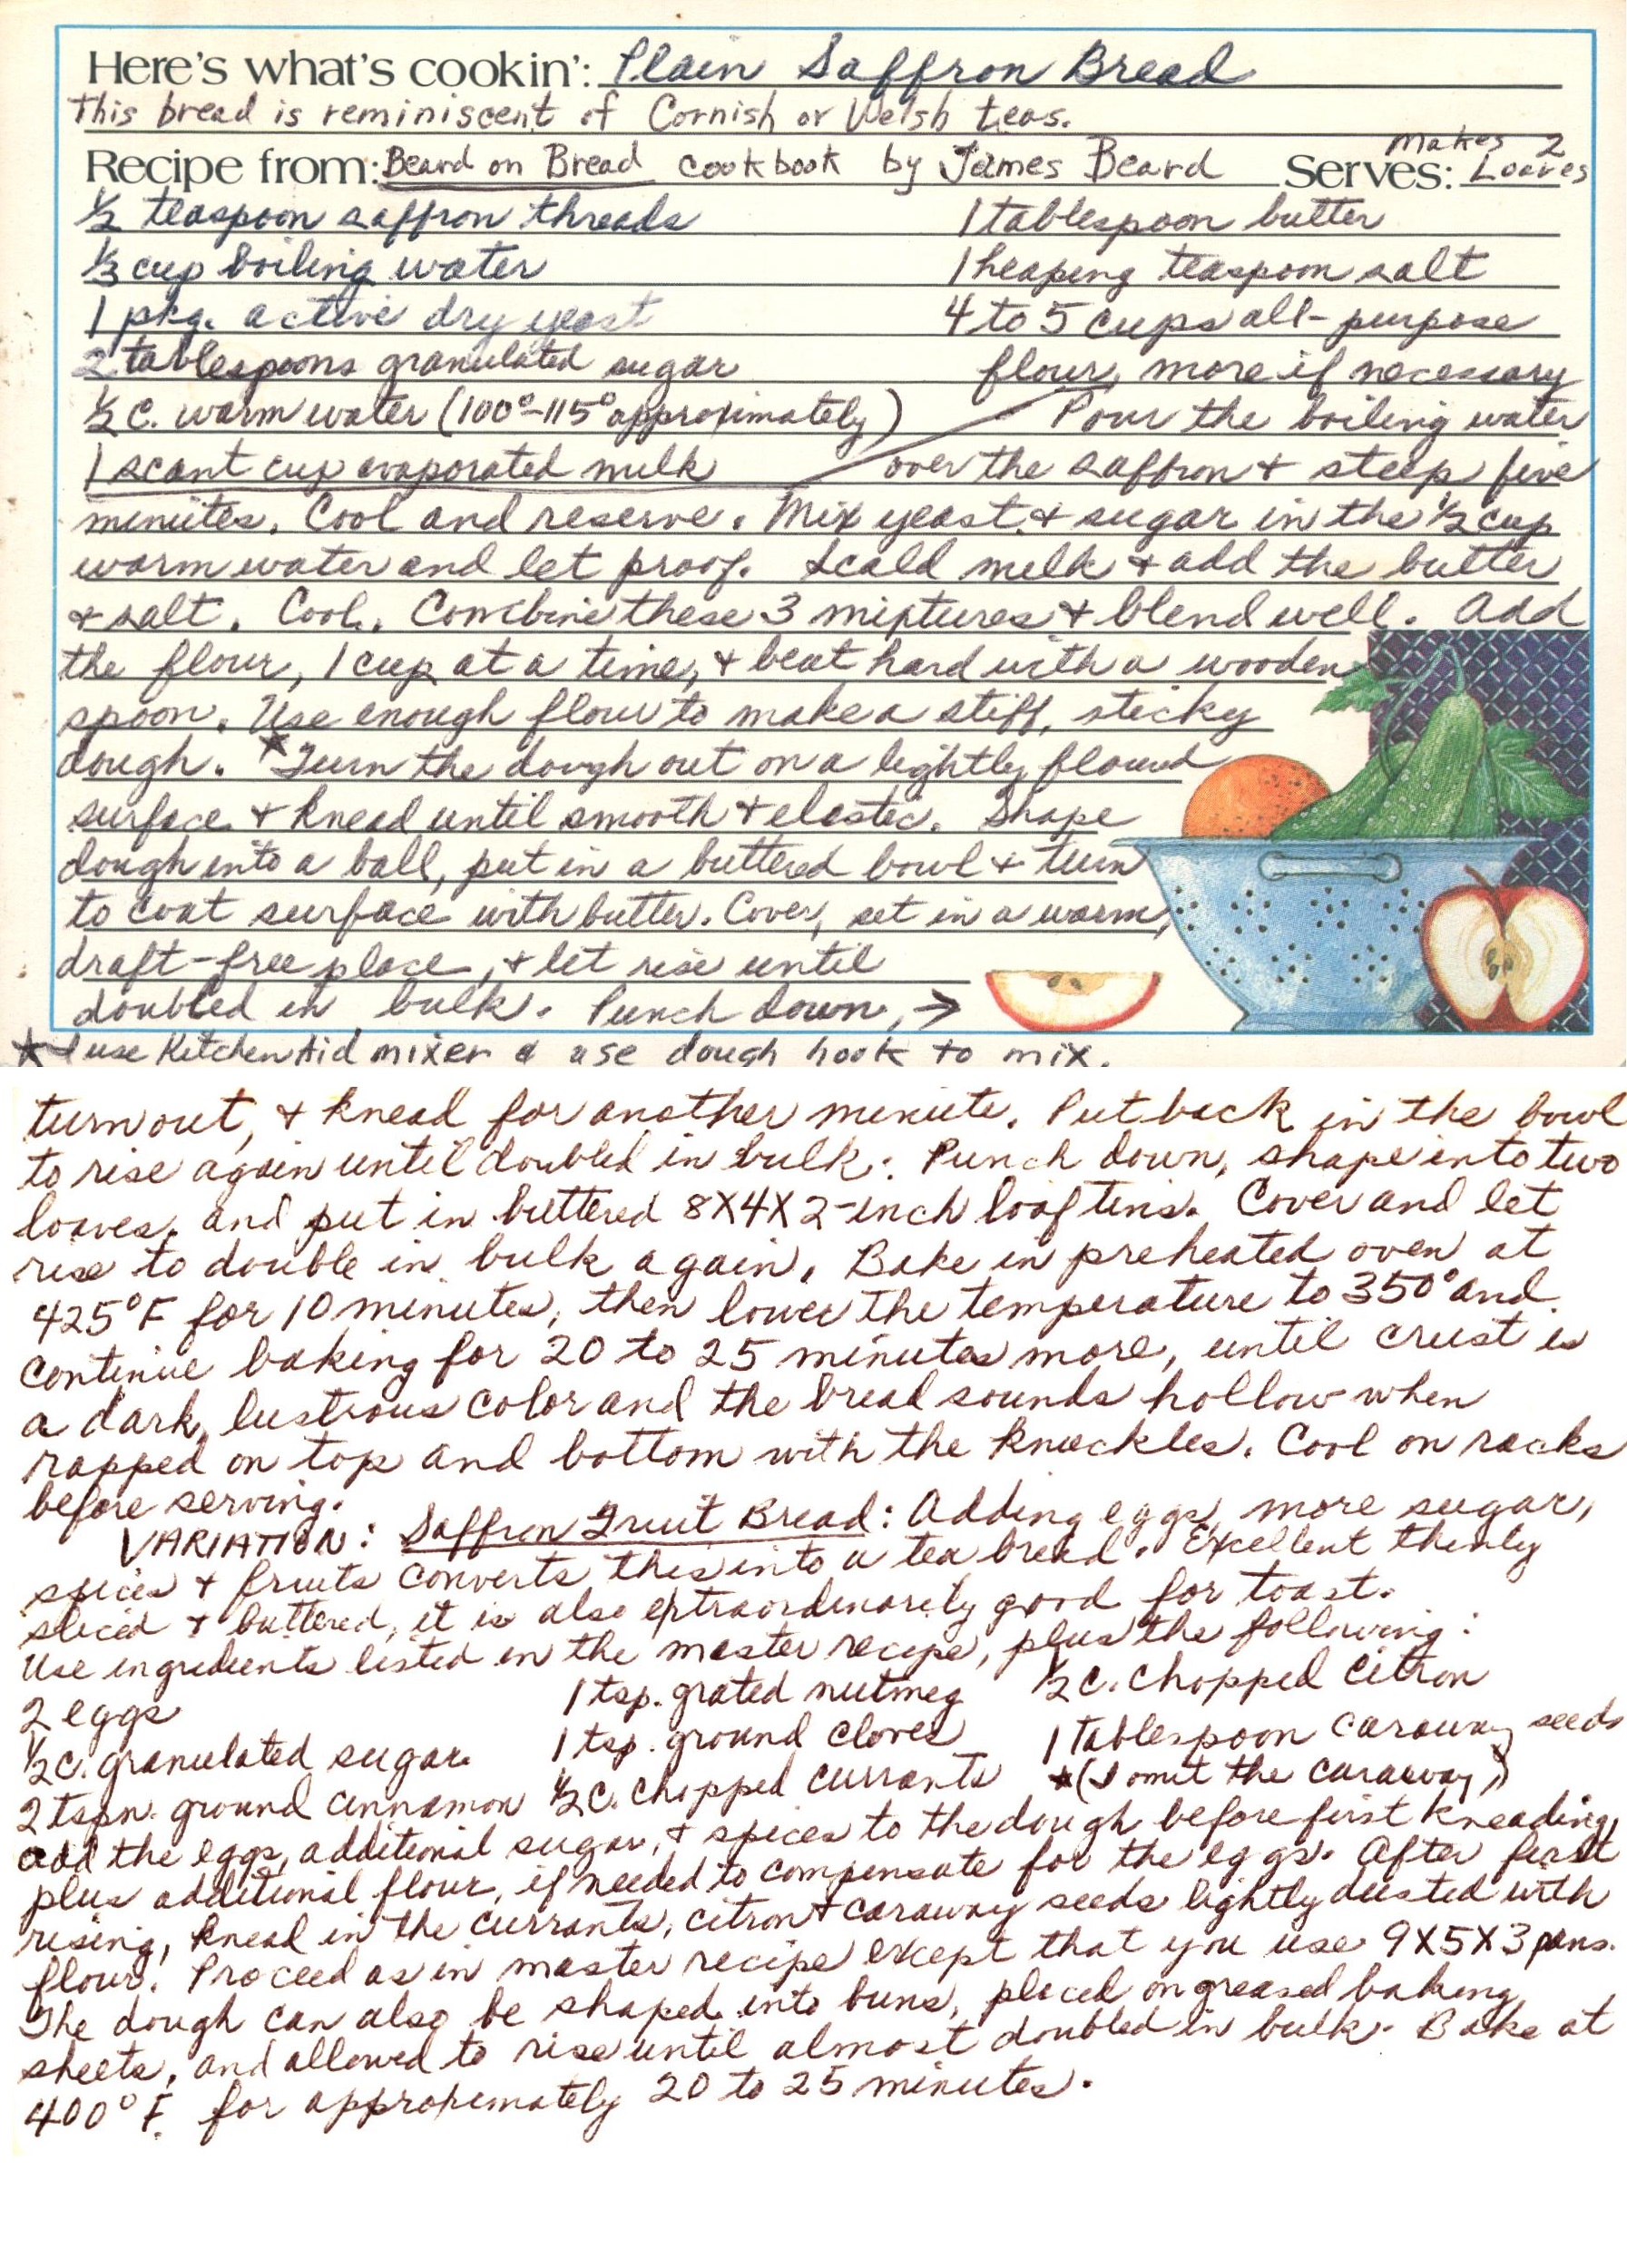 Here's what's cookin': Plain Saffron Bread
This bread is reminiscent of Cornish or Welsh teas.
Recipe from: Beard on Bread cookbook by James Beard Serves: Makes 2 Loaves
1/2 teaspoon saffron threads
1/3 cup boiling water
1 pkg. active dry yeast
2 tablespoons granulated sugar
1/2 c. warm water (100°-115° approximately)
1 scant cup evaporated milk
1 tablespoon butter
1 heaping teaspoon salt
4 to 5 cups all-purpose
flour, more if necessary
Pour the boiling water
over the saffron + steep five
minutes. Cool and reserve. Mix yeast + sugar in the 1/2 cup
warm water and let proof. Scald milk + add the butter
+ salt. Cool. Combine these 3 mixtures + blend well. Add
the flour, 1 cup at a time, + beat hard with a wooden
spoon. Use enough flour to make a stiff, sticky
dough. ★Turn the dough out on a lightly floured
surface + knead until smooth + elastic. Shape
dough into a ball, put in a buttered bowl + turn
to coat surface with butter. Cover, set in a warm,
draft-free place, + let rise until
doubled in bulk. Punch down, →
★I use KitchenAid mixer & use dough hook to mix.
turn out, + knead for another minute. Put back in the bowl
to rise again until doubled in bulk. Punch down, shape into two
loaves, and put in buttered 8X4X2-inch loaf tins. Cover and let
rise to double in bulk again. Bake in preheated oven at
425°F for 10 minutes, then lower the temperature to 350° and
continue baking for 20 to 25 minutes more, until crust is
a dark, lustrous color and the bread sounds hollow when
rapped on top and bottom with the knuckles. Cool on racks
before serving.
VARIATION: Saffron Fruit Bread: Adding eggs, more sugar,
spices + fruits converts this into a tea bread. Excellent thinly
sliced + buttered, it is also extraordinarily good for toast.
Use ingredients listed in the master recipe, plus the following:
2 eggs 1 tsp. grated nutmeg 1/2 c. chopped citron
1/2 c. granulated sugar 1 tsp. ground cloves 1 tablespoon caraway seeds
2 tspn. ground cinnamon 1/2 c. chopped currants ★(I omit the caraway)
add the eggs, additional sugar, + spices to the dough before first kneading,
plus additional flour, if needed to compensate for the eggs. After first
rising, knead in the currants, citron + caraway seeds lightly dusted with
flour. Proceed as in master recipe except that you use 9X5X3 pans.
The dough can also be shaped into buns, placed on greased baking
sheets, and allowed to rise until almost doubled in bulk. Bake at
400°F. for approximately 20 to 25 minutes.